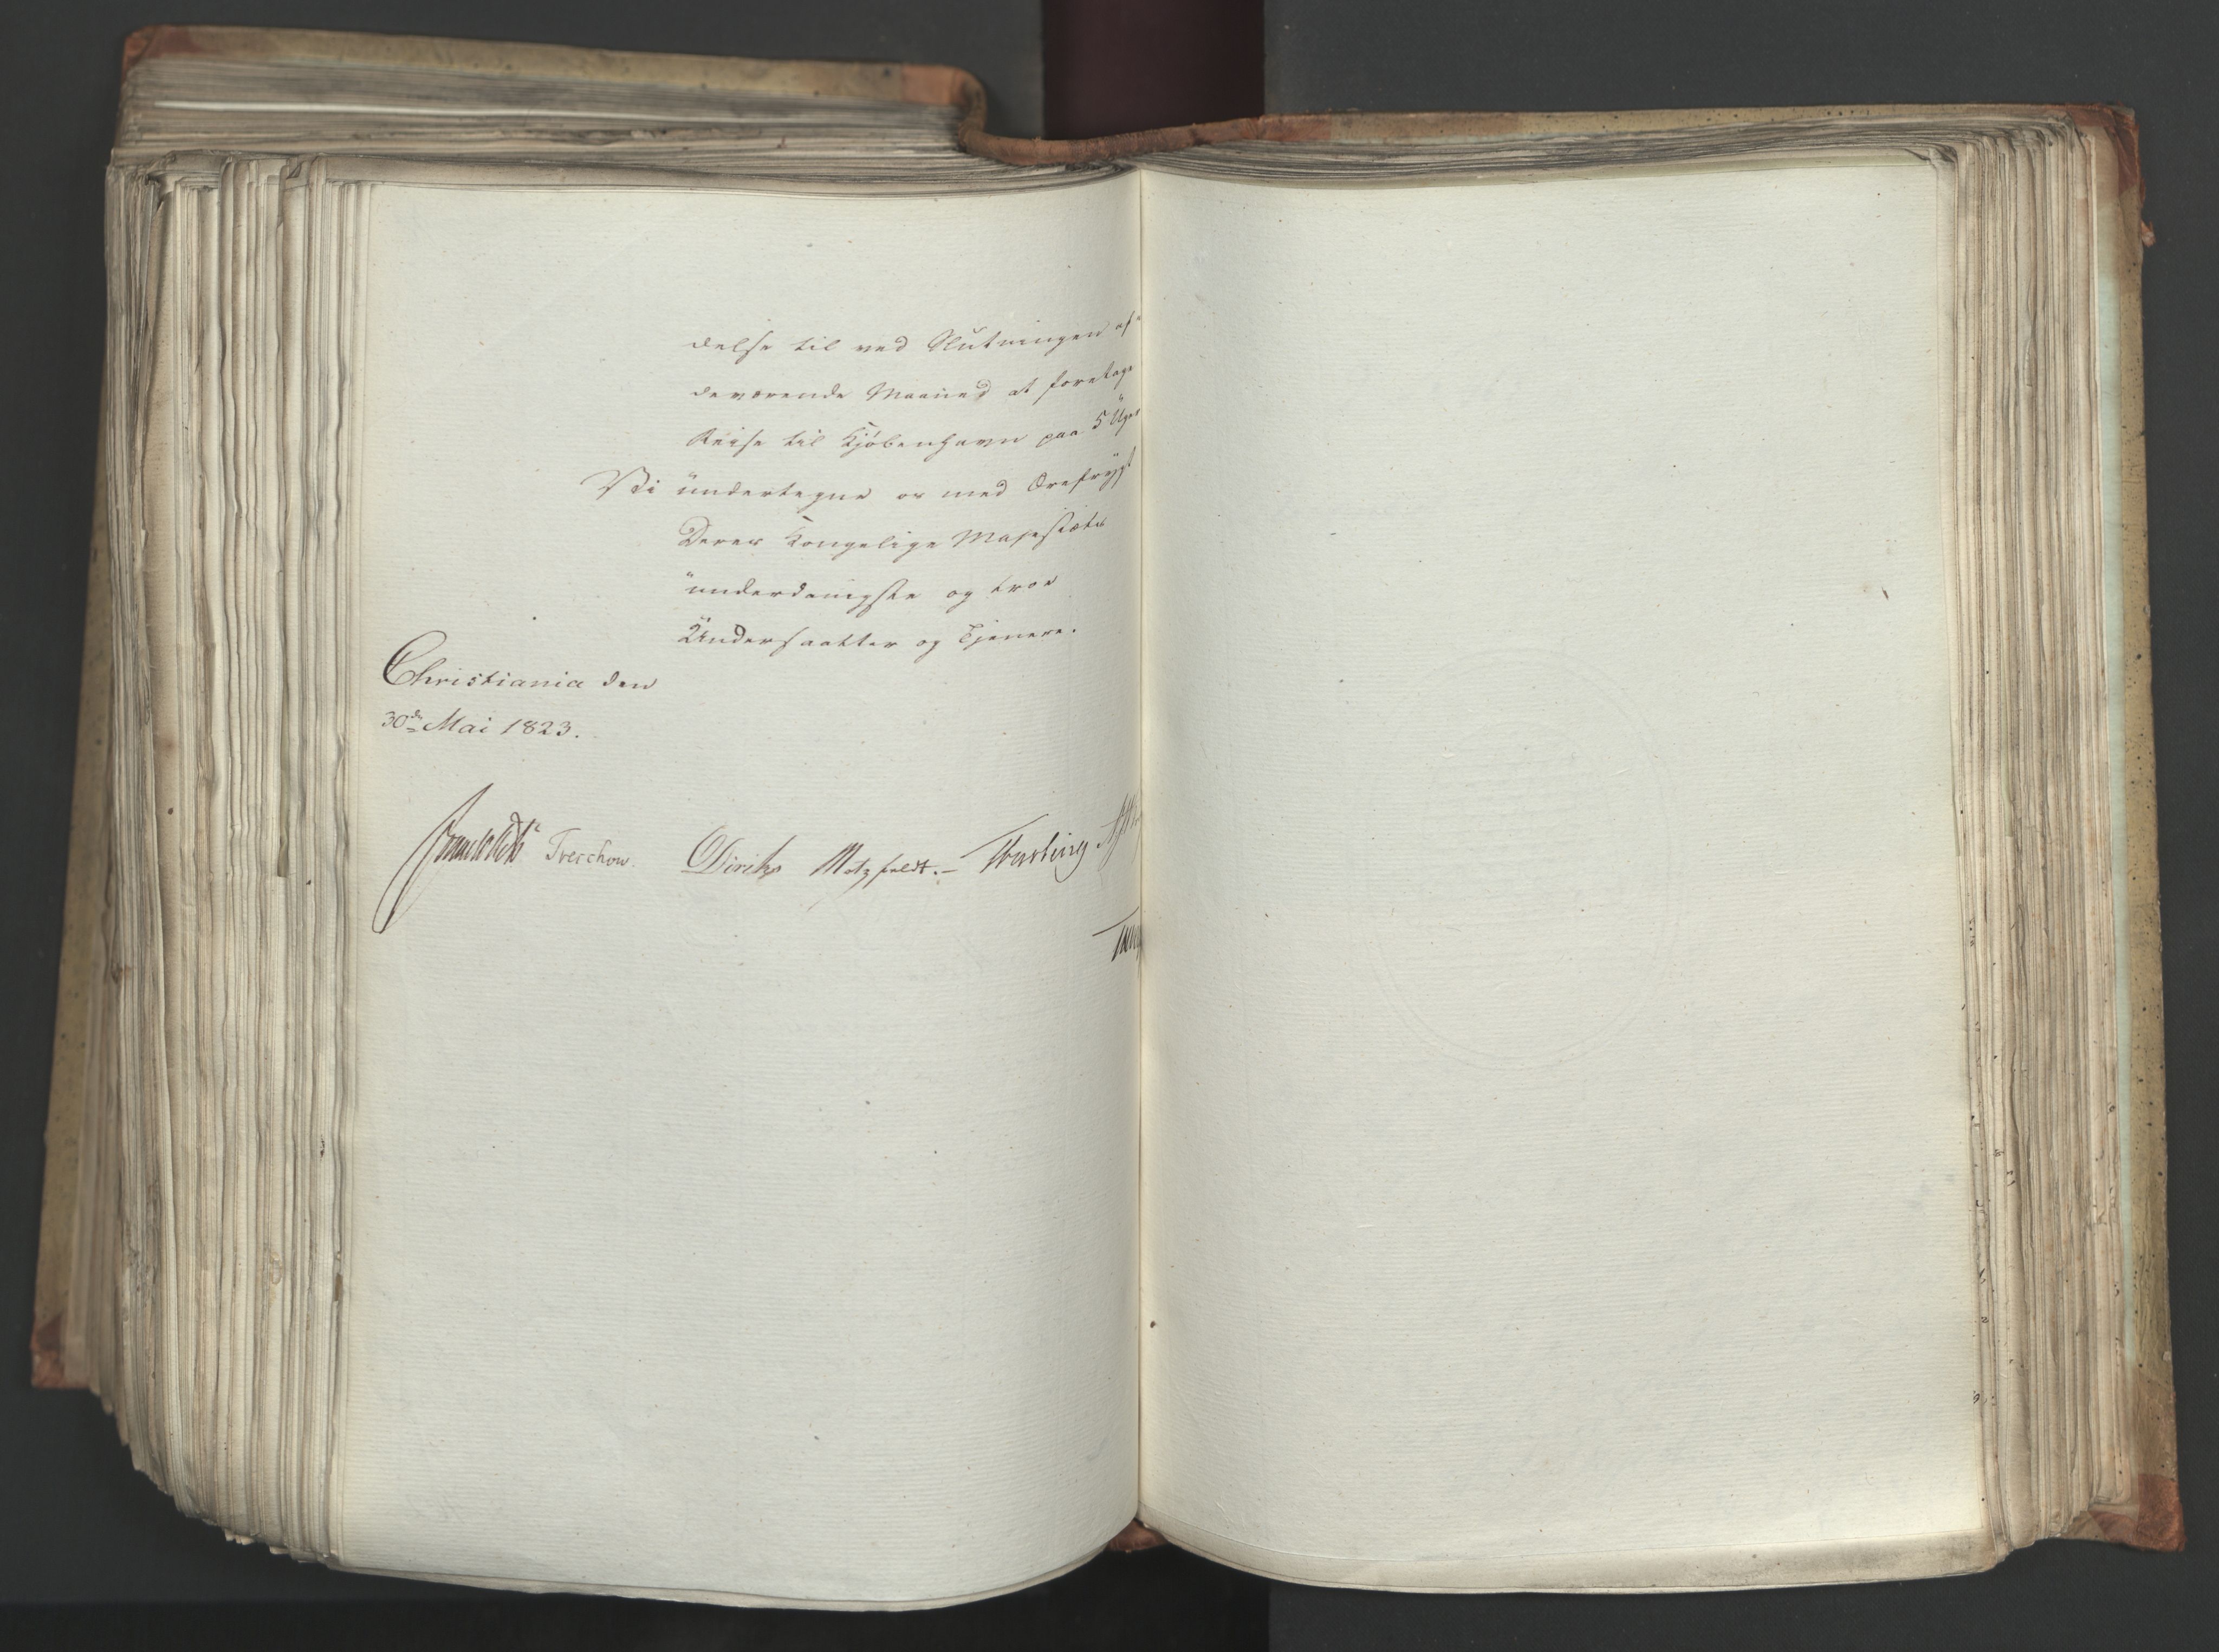 delse til ved Slutningen af
deværende Maaned at foretage
Reise til Kjöbenhavn paa 5 Uger
Vi undertegne os med Ærefrygt
Deres Kongelige Majestæts
underdanigste og troe
Undersaatter og Tjenere.
Christiania den
30de Mai 1823.
Treschow. Diriks Motzfeldt.-